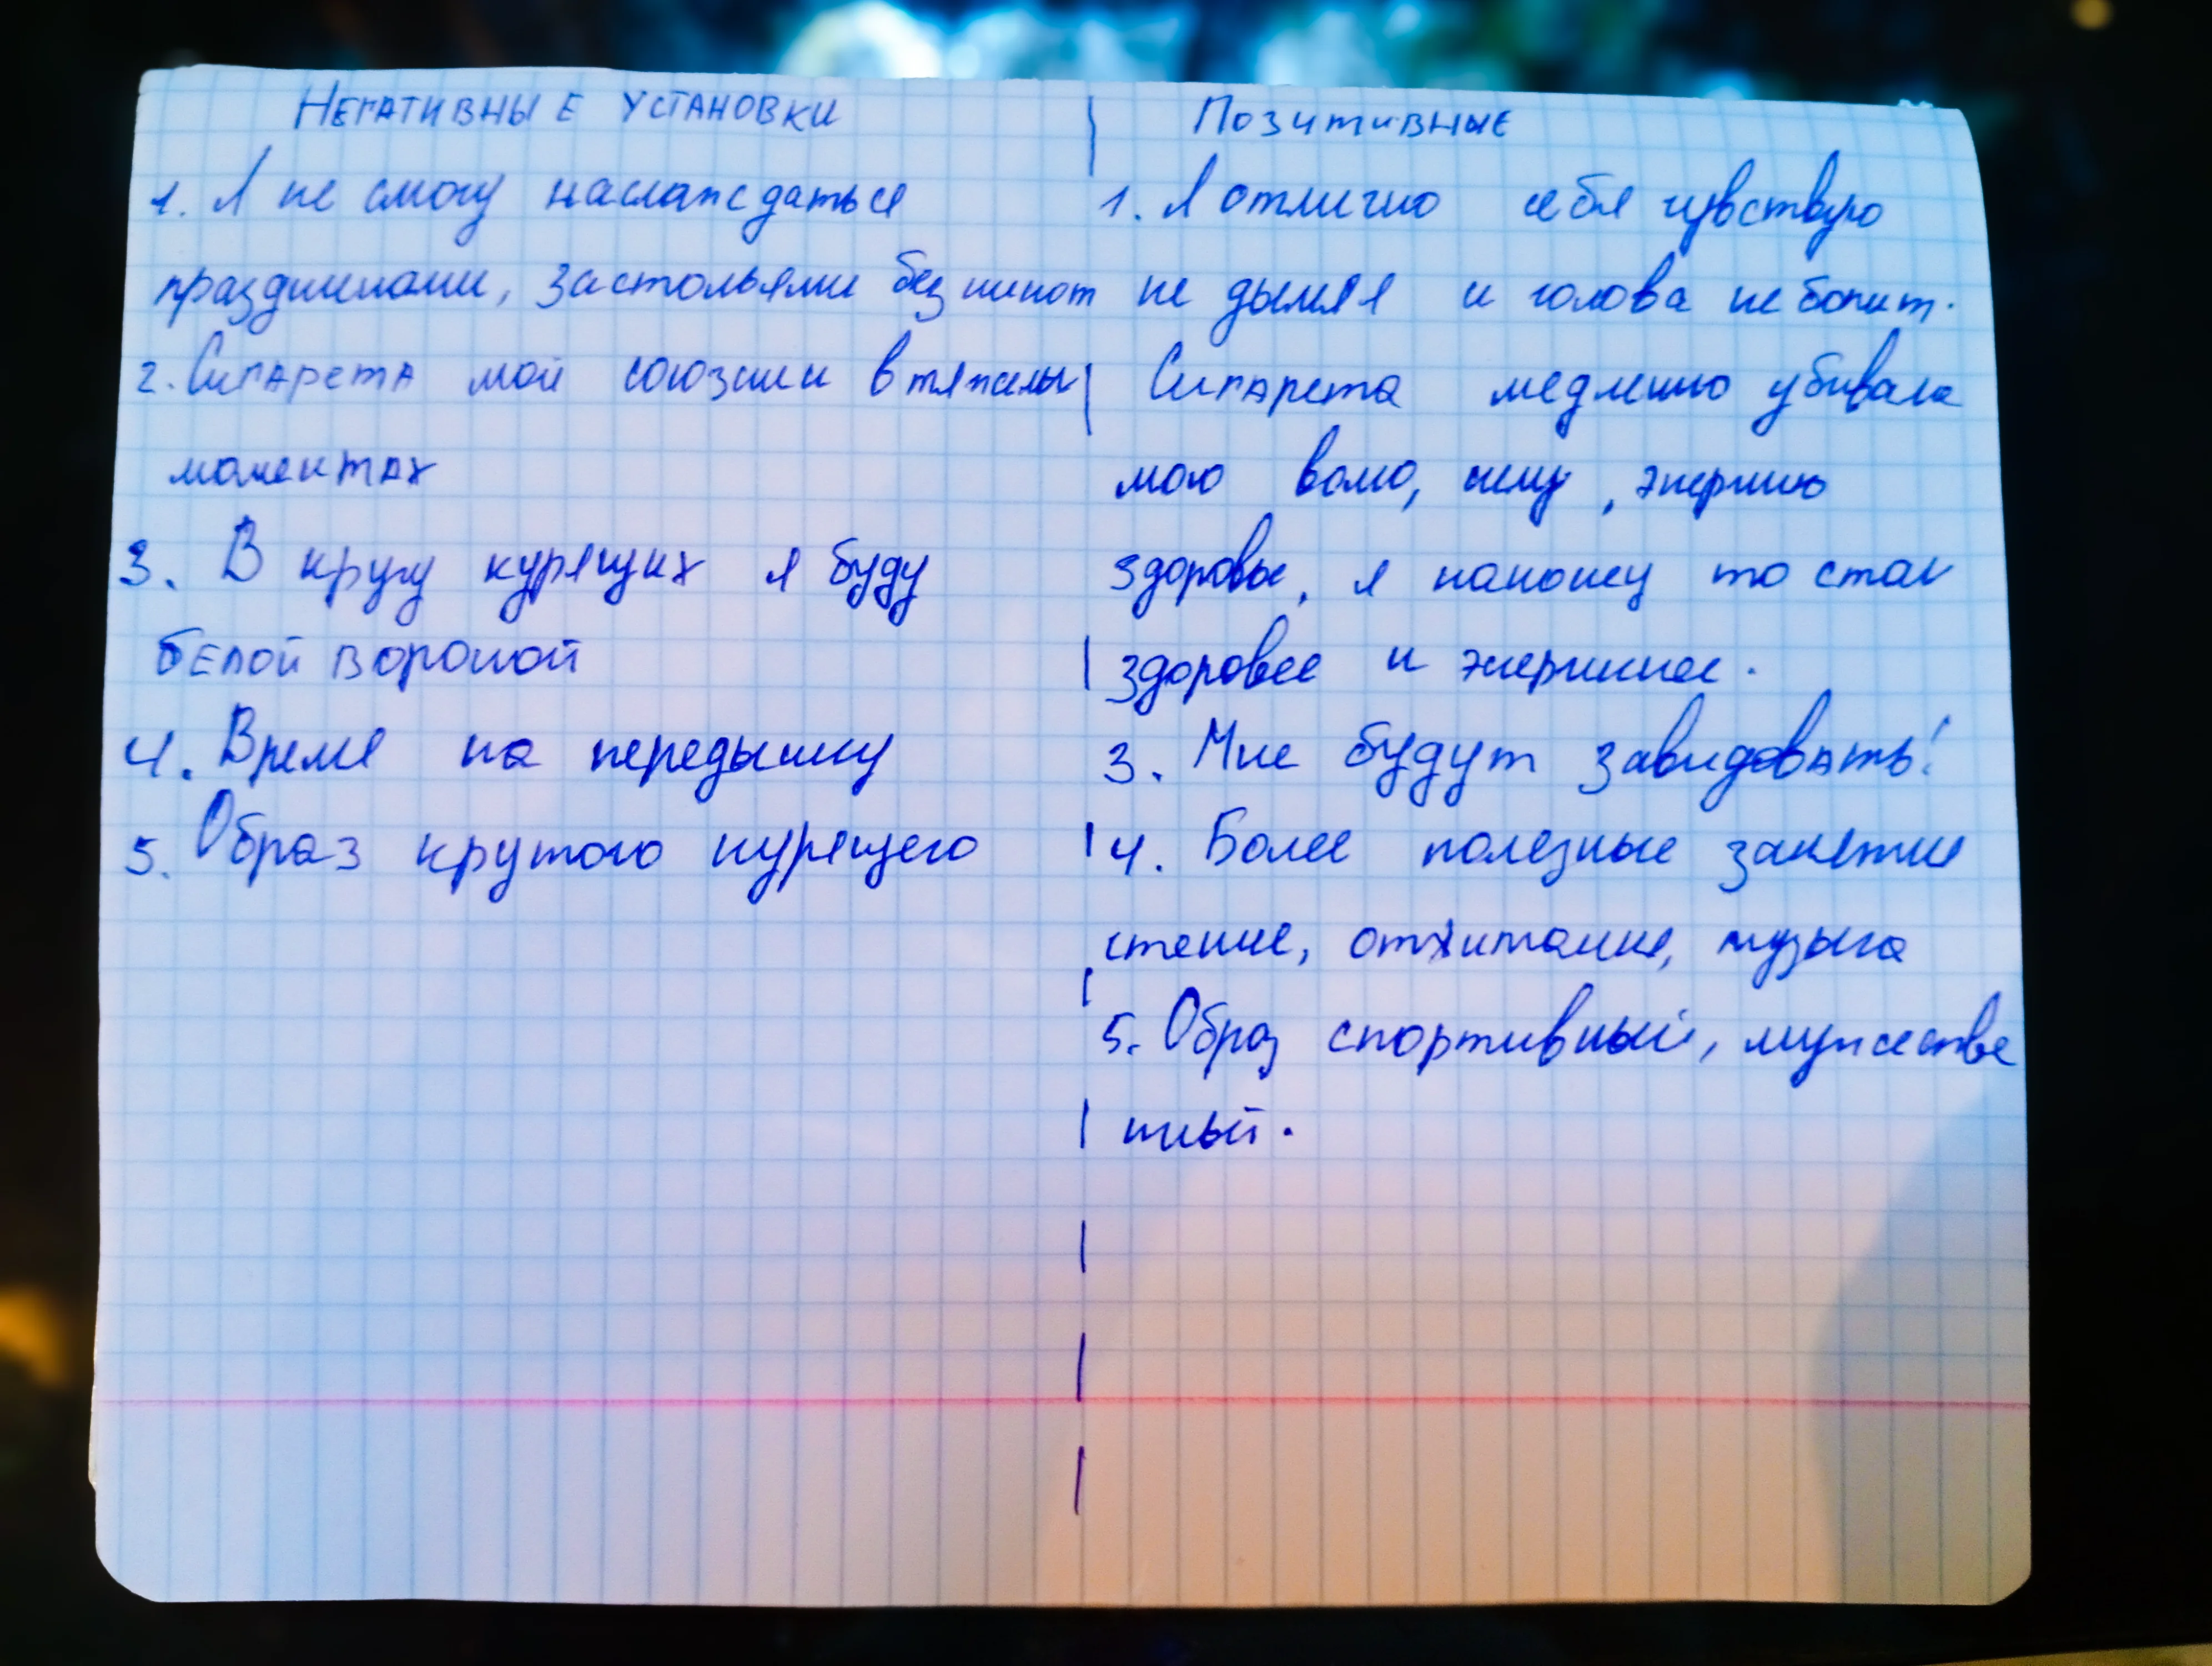 Негативные установки
1. Я не смогу наслаждаться
праздниками, застольями без никот
2. Сигарета мой союзник в тяжелы
моментах
3. В кругу курящих я буду
белой вороной
4. Время на передышку
5. Образ крутого курящего
Позитивные
1. Я отлично себя чувствую
не дымя и голова не болит.
Сигарета медленно убивала
мою волю, силу, энергию
здоровье, я наконец то стал
здоровее и энергичнее.
3. Мне будут завидовать!
4. Более полезные занятие
чтение, отжимание, музыка
5. Образ спортивный, мужестве
нный.